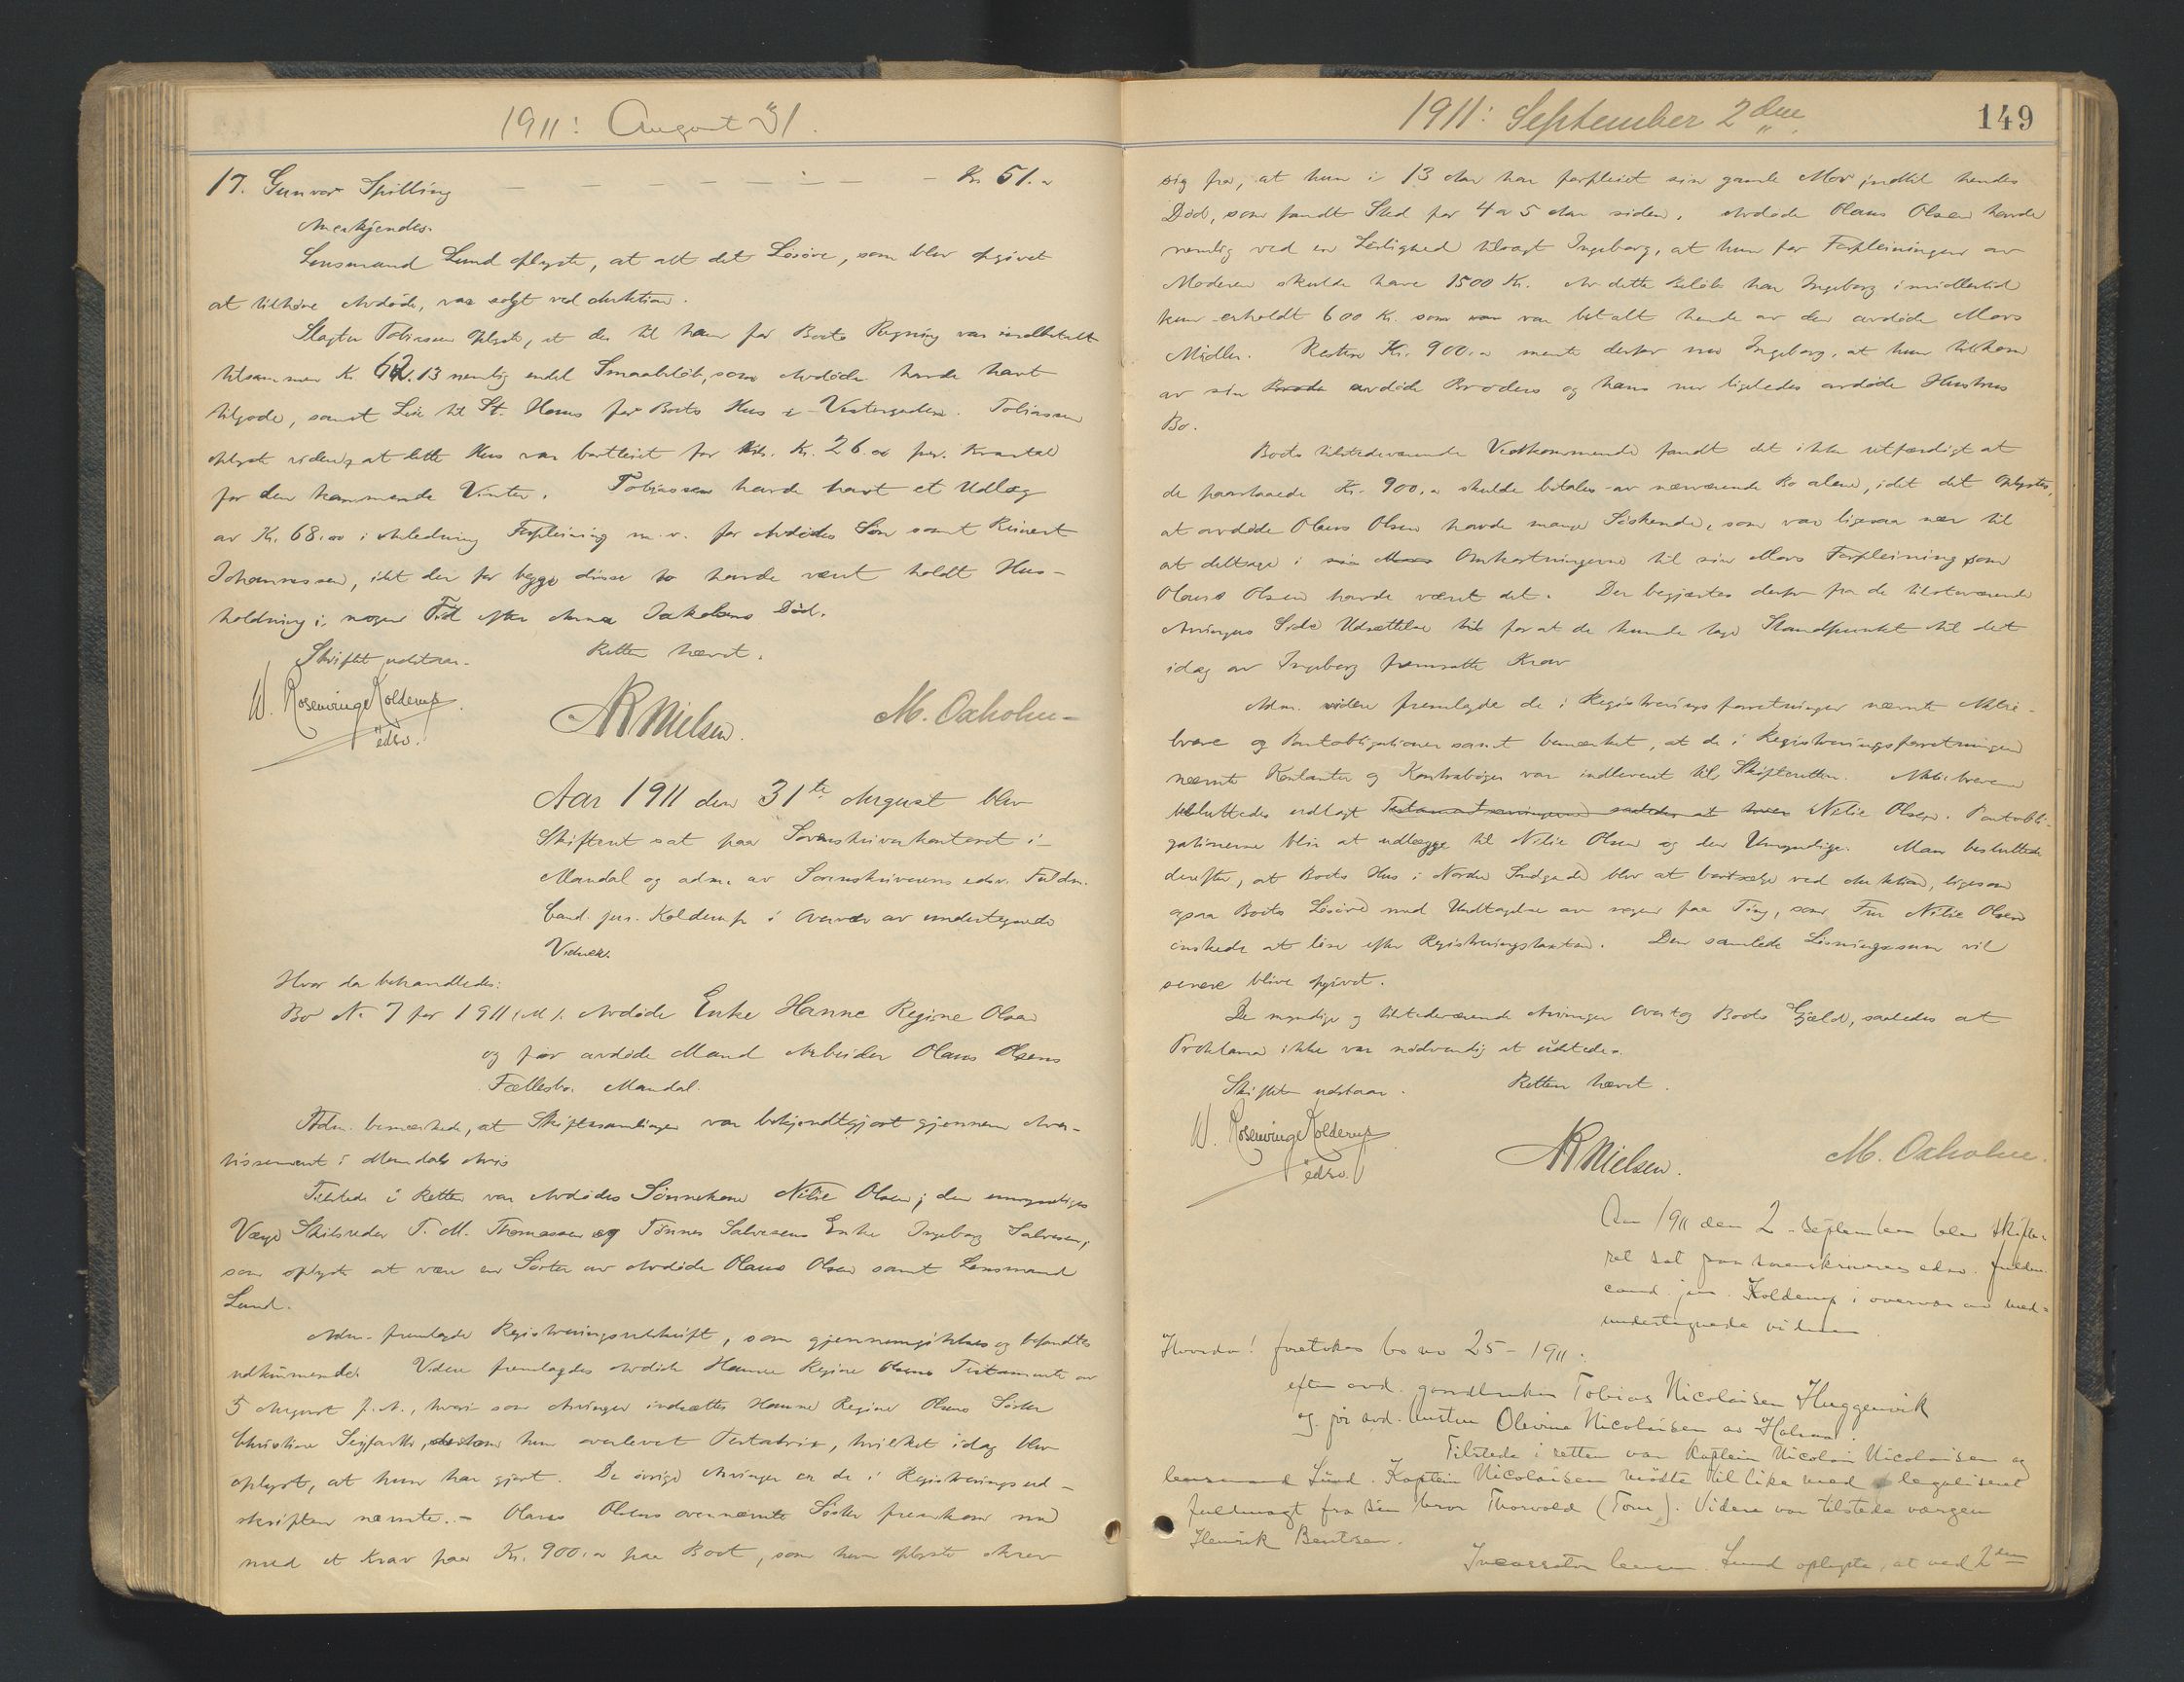 1911: August 31.
17. Gunvor Spilling — — — — — — — — Kr. 51.00
Anerkjendes.
Lensmand Lund oplyste, at alt det Løsøre, som blev opgivet
at tilhøre Avdøde, var solgt ved Auktion.
Slagter Tobiassen oplyste, at der til ham for Boets Regning var indbetalt
tilsammen Kr. 62.13 nemlig endel Smaabeløb, som Avdøde havde havt
tilgode, samt Leie til St. Hans for Boets Hus i Vestergaden. Tobiassen
oplyste videre, at dette Hus var bortleiet for Kr. 26.00 per. Kvartal
for den kommende Vinter. Tobiassen havde havt et Udlæg
av Kr. 68.00 i Anledning Forpleining m.v. for Avdødes Søn samt Reinert
Johannessen, idet der for begge disse to havde været holdt Hus-
holdning i nogen Tid efter Anna Jakobsens Død.
Skiftet udstaar. Retten hævet.
W. Rosenvinge Kolderup
edsv.
NR Nielsen. M. Oxholm
Aar 1911 den 31te August blev
Skifteret sat paa Sorenskriverkontoret i
Mandal og adm. av Sorenskriverens edsv. Fuldm.
Cand. jur. Kolderup i Overvær av undertegnede
Vidner.
Hvor da behandledes:
Bo No 7 for 1911 (M). Avdøde Enke Hanne Regine Olsen
og før avdøde Mand Arbeider Olaus Olsens
Fællesbo. Mandal.
Adm. bemærkede, at Skiftesamlingen var bekjendtgjort gjennem Aver-
tissement i Mandals Avis
Tilstede i Retten var Avdødes Sønnekone Nilie Olsen; den umyndiges
Værge Skibsreder T. M. Thomassen og Tønnes Salvesens Enke Ingeborg Salvesen,
som oplyste at være en Søster av Avdøde Olaus Olsen samt Lensmand
Lund.
Adm. fremlagde Registreringsudskrift, som gjennemgikkes og befandtes
udtømmende. Videre fremlagdes Avdøde Hanne Regine Olsens Testamente av
5 August f.A., hvori som Arvinger indsættes Hanne Regine Olsens Søster
Christine Seyfarth, dersom hun overlevet Testatrix, hvilket idag blev
oplyst, at hun har gjort. De øvrige Arvinger er de i Registreringsud-
skriften nævnte. — Olaus Olsens ovennævnte Søster fremkom nu
med et Krav paa Kr. 900.00 paa Boet, som hun oplyste skrev
1911: September 2den
149
sig fra, at hun i 13 Aar har forpleiet sin gamle Mor indtil hendes
Død, som fandt Sted for 4 a 5 Aar siden. Avdøde Olaus Olsen havde
nemlig ved en Leilighed tilsagt Ingeborg, at hun for Forpleiningen av
Moderen skulde have 1500 Kr. Av dette Beløb har Ingeborg imidlertid
kun erholdt 600 Kr. som var betalt hende av den avdøde Mors
Midler. Resten Kr. 900.00 mente derfor nu Ingeborg, at hun tilkom
av sin avdøde Broders og hans nu ligeledes avdøde Hustrus
Bo.
Boets tilstedeværende Vedkommende fandt det ikke retfærdigt at
de paastaaede Kr. 900.00 skulde betales av nærværende Bo alene, idet det oplystes,
at avdøde Olaus Olsen havde mange Søskende, som var ligesaa nær til
at deltage i Omkostningerne til sin Mors Forpleining som
Olaus Olsen havde været det. Der begjærtes derfor fra de tilstedeværende
Arvingers Side Udsættelse for at de kunde tage Standpunkt til det
idag av Ingeborg fremsatte Krav
Adm. videre fremlagde de i Registreringsforretningen nævnte Aktie-
breve og Pantobligationer samt bemærket, at de i Registreringsforretningen
nævnte Kontanter og Kontrabøger var indleveret til Skifteretten. Aktiebrevene
besluttedes udlagt Testamentsarvingerne saaledes at Nilie Olsen. Pantobli-
gationerne blir at udlægge til Nilie Olsen og den Umyndige. Man besluttede
derefter, at Boets Hus i Nordre Sndgade blev at bortsælge ved Auktion, ligesom
ogsaa Boets Løsøre med Undtagelse av nogen faa Ting, som Fru Nilie Olsen
ønskede at løse efter Registreringstaxten. Den samlede Løsningssum vil
senere blive opgivet.
De myndige og tilstedeværende Arvinger overtog Boets Gjæld, saaledes at
Proklama ikke var nødvendig at udstedes.
Skiftet udstaar. Retten hævet.
W. Rosenvinge Kolderup
edsv.
NR Nielsen. M. Oxholm.
Aar 1911 den 2 september blev skifte-
ret sat paa sorenskriverens edsv. fuldm.
cand. jur. Kolderup i overvær av med-
undertegnede vidner.
Hvorda! foretokes bo no 25 - 1911.
efter avd. gaardbruker Tobias Nicolaisen Huggenvik
og før avd. hustru Olevine Nicolaisen av Halsaa.
Tilstede i retten var Kaptein Nicolai Nicolaisen og
lensmand Lund. Kaptein Nicolaisen mødte tillike med legaliseret
fuldmagt fra sin bror Thorvald (Tom). Videre var tilstede værgen
Henrik Bentsen.
Incassator lensm. Lund oplyste, at ved 2den